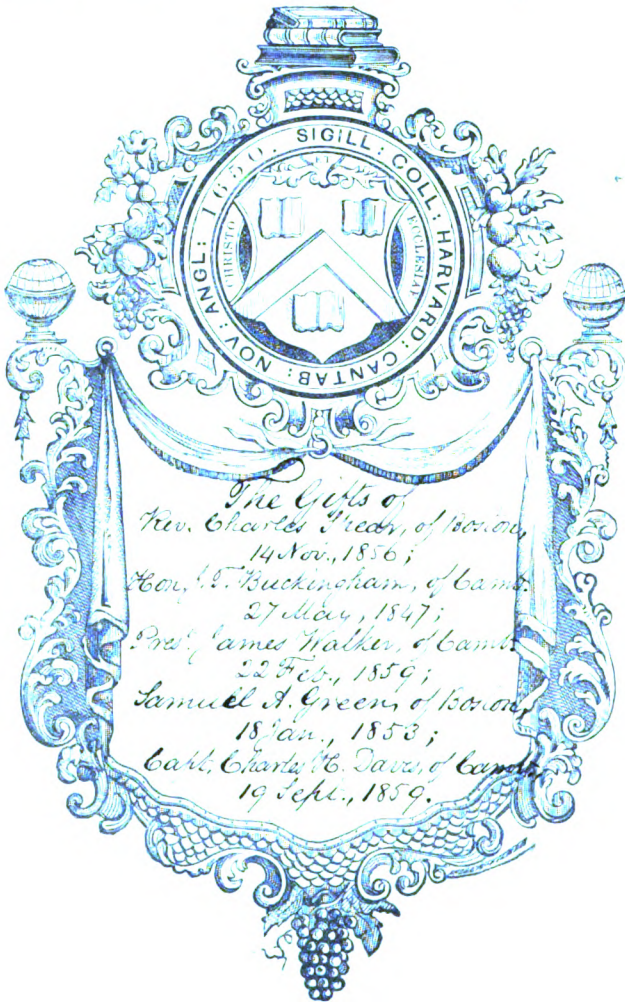 SIGILL: COLL: HARVARD: CANTAB: NOV: ANGL: 1650.
CHRISTO
ECCLESIAE
The Gifts of
Rev. Charles Spear, of Boston,
14 Nov., 1856;
Hon. J. T. Buckingham, of Camb.
27 May, 1847;
Pres't James Walker, of Camb.
22 Feb., 1859;
Samuel A. Green, of Boston,
18 Jan., 1853;
Capt. Charles H. Davis, of Camb.,
19 Sept., 1859.